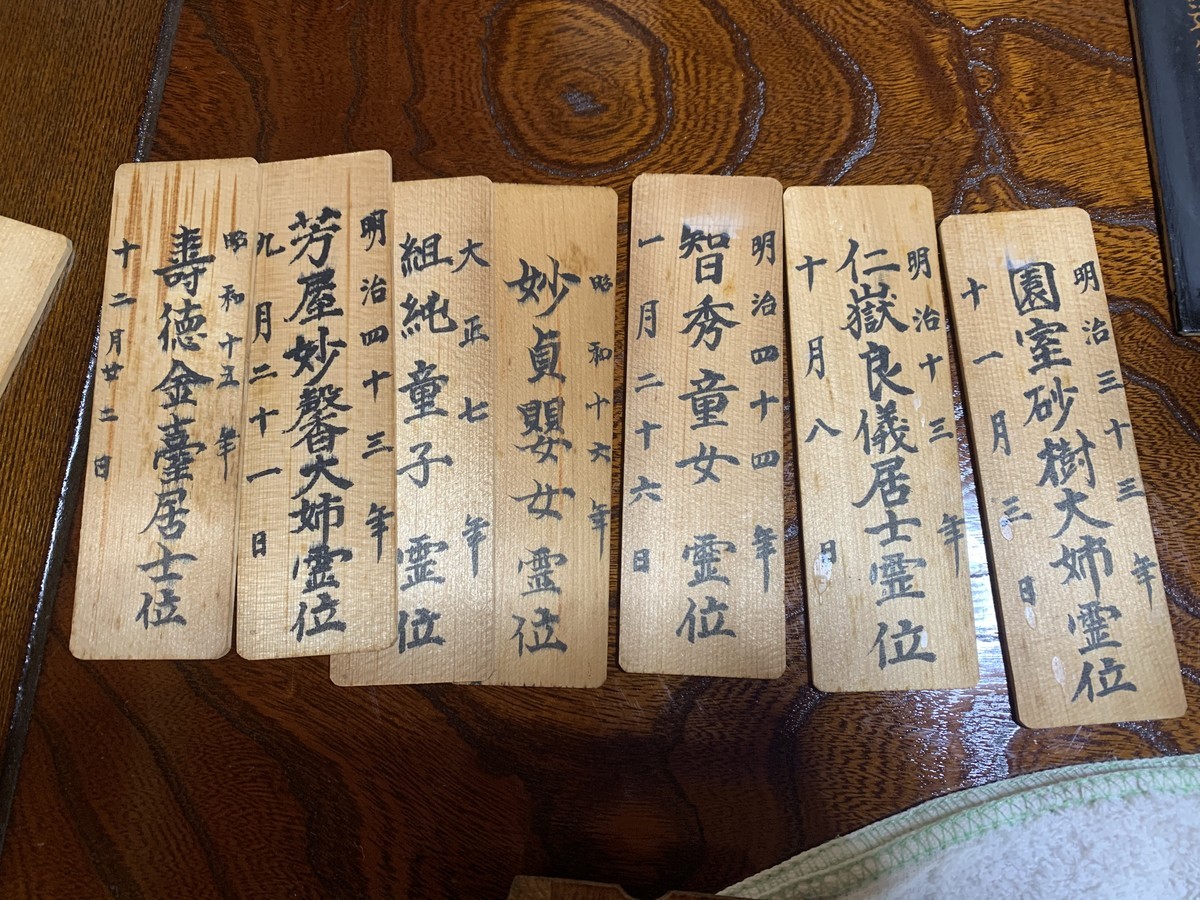 明治三十三年
園室砂樹大姉霊位
十一月三日
明治十三年
仁嶽良儀居士霊位
十月八日
明治四十四年
智秀童女霊位
一月二十六日
昭和十六年
妙貞嬰女霊位
大正七年
組純童子霊位
明治四十三年
芳屋妙馨大姉霊位
九月二十一日
昭和十五年
壽徳金臺居士位
十二月廿二日